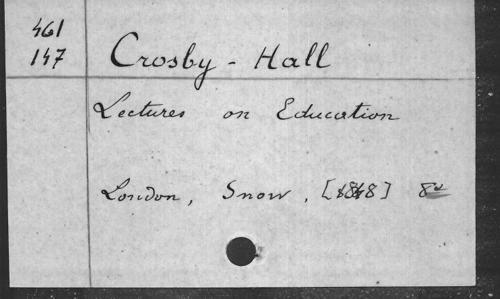 461
147
Crosby - Hall
Lectures on Education
London, Snow, [1848] 8º